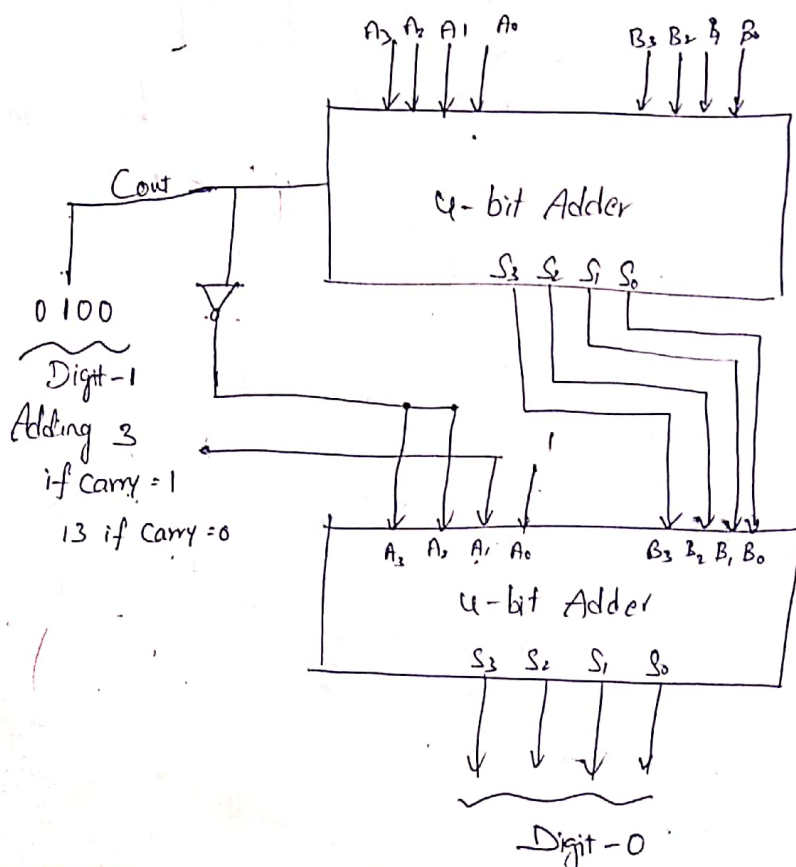 A3 A2 A1 A0 B3 B2 B1 B0
Cout
4-bit Adder
S3 S2 S1 S0
0100
Digit-1
Adding 3
if Carry = 1
13 if Carry = 0
1
A3 A2 A1 A0 B3 B2 B1 B0
4-bit Adder
S3 S2 S1 S0
Digit-0